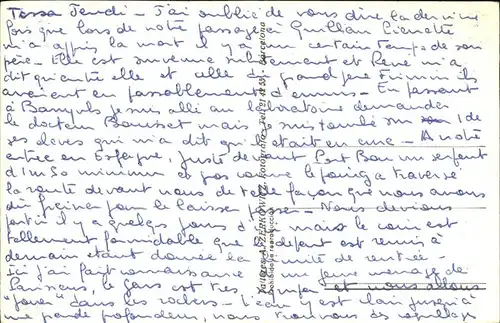 Tossa Jeudi - J'ai oublié de vous dire la dernière
fois que lors de notre passage à Quillan Pierrette
m'a appris la mort il y a un certain temps de son
père - Elle est survenue subitement et René m'a
dit qu'entre elle et celle du grand père Firmin ils
avaient eu passablement d'ennuis - En passant
à Banyuls je suis allé au laboratoire demander
le docteur mais je suis tombé sur 1 de
ses élèves qui m'a dit qu'il était en cure - A notre
entrée en Espagne, juste devant Port Bou un serpent
d'1m50 minimum et gros comme le poing a traversé
la route devant nous de telle façon que nous avons
dû freiner pour le laisser passer - Nous devions
partir il y a quelques jours mais le coin est
tellement formidable que le départ est remis à
demain étant donnée la limite de rentrée
Ici j'ai fait connaissance un jeune ménage de
Parisiens, le gars est très et nous allons
"jouer" dans les rochers - L'eau y est clair jusqu'à
une grande profondeur, nous trouvons des coquillages